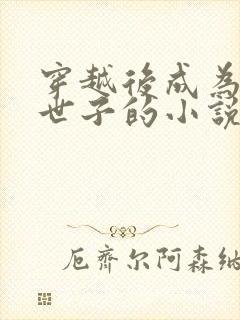 穿越後成為
世子的小說
厄齊尔阿森納